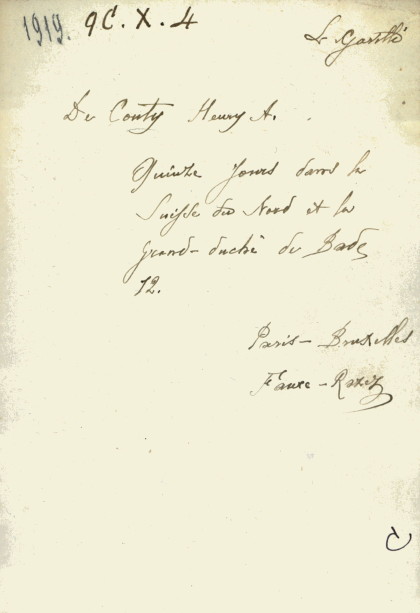 1919. 9C. X. 4
De Conty Henry A.
Quinze Jours dans la
Suisse du Nord et la
grand-duché de Bade
12.
Paris - Bruxelles